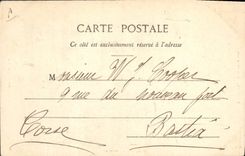 A
CARTE POSTALE
Ce côté est exclusivement réservé à l'adresse
Monsieur W J
9 rue du nouveau port
Corse Bastia